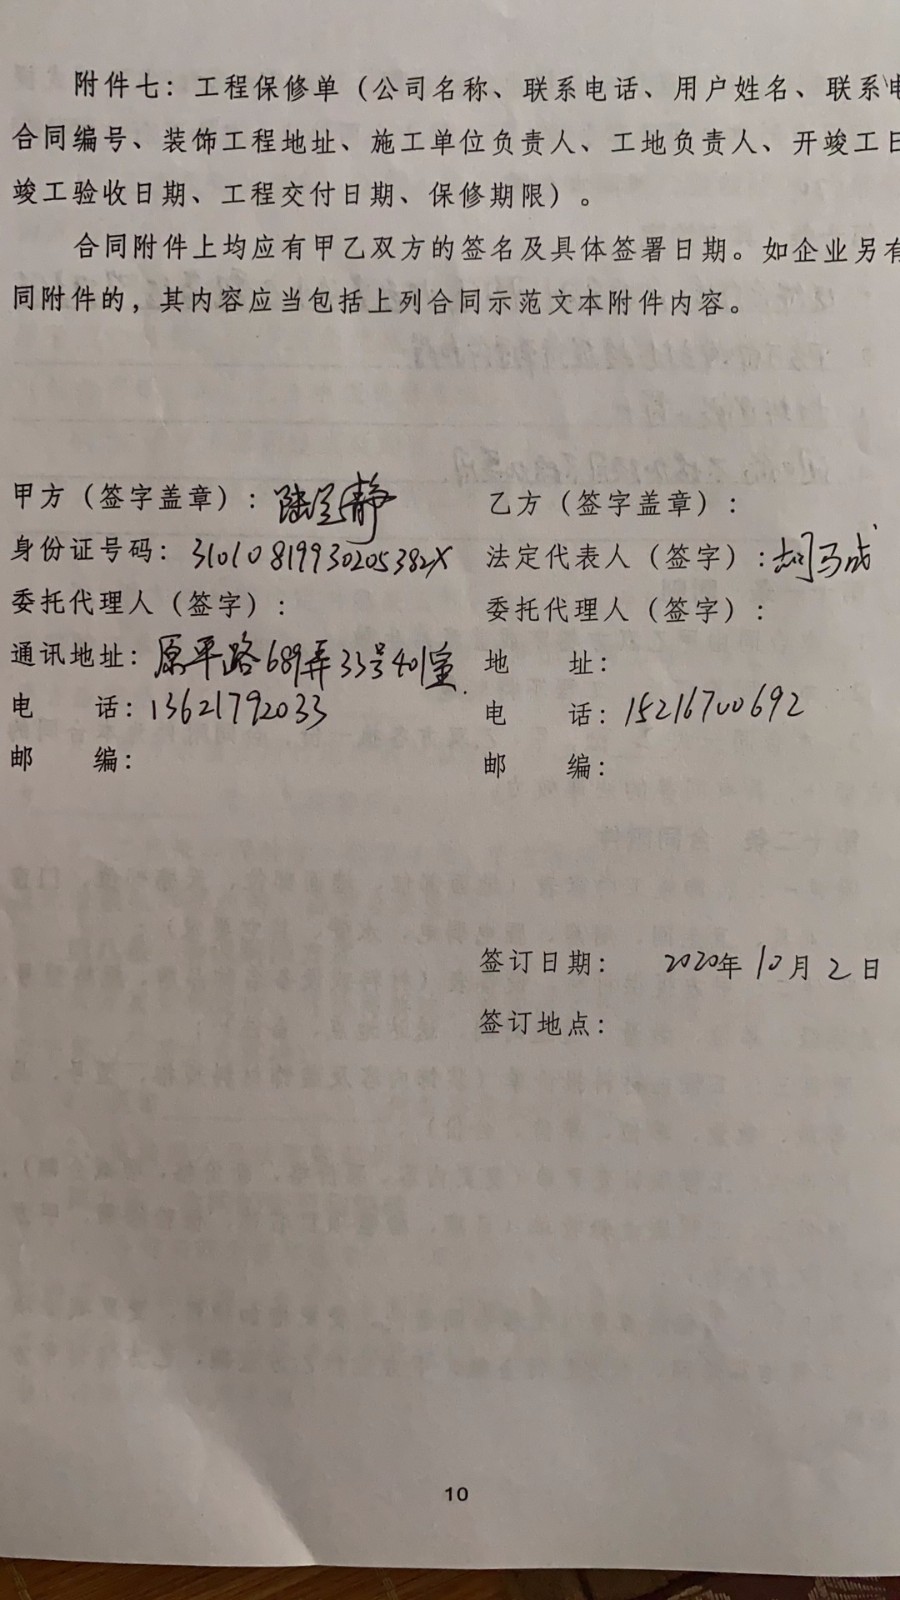 附件七：工程保修单（公司名称、联系电话、用户姓名、联系电
合同编号、装饰工程地址、施工单位负责人、工地负责人、开竣工日
竣工验收日期、工程交付日期、保修期限）。
合同附件上均应有甲乙双方的签名及具体签署日期。如企业另有
同附件的，其内容应当包括上列合同示范文本附件内容。
甲方（签字盖章）：陆 静
乙方（签字盖章）：
身份证号码：
法定代表人（签字）：胡马成
委托代理人（签字）：
委托代理人（签字）：
通讯地址：原平路689弄33号401室.
地 址：
电 话：13621792033
电 话：15216700692
邮 编：
邮 编：
签订日期： 2020年10月2日
签订地点：
10